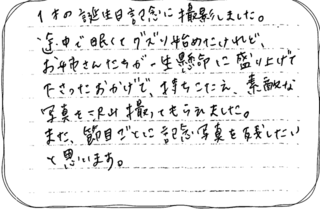 1才の誕生日記念に撮影しました。
途中で眠くてグズり始めたけれど、
お姉さんたちが一生懸命に盛り上げて
下さったおかげで、持ちこたえ、素敵な
写真を沢山撮ってもらえました。
また、節目ごとに記念写真を残したい
と思います。